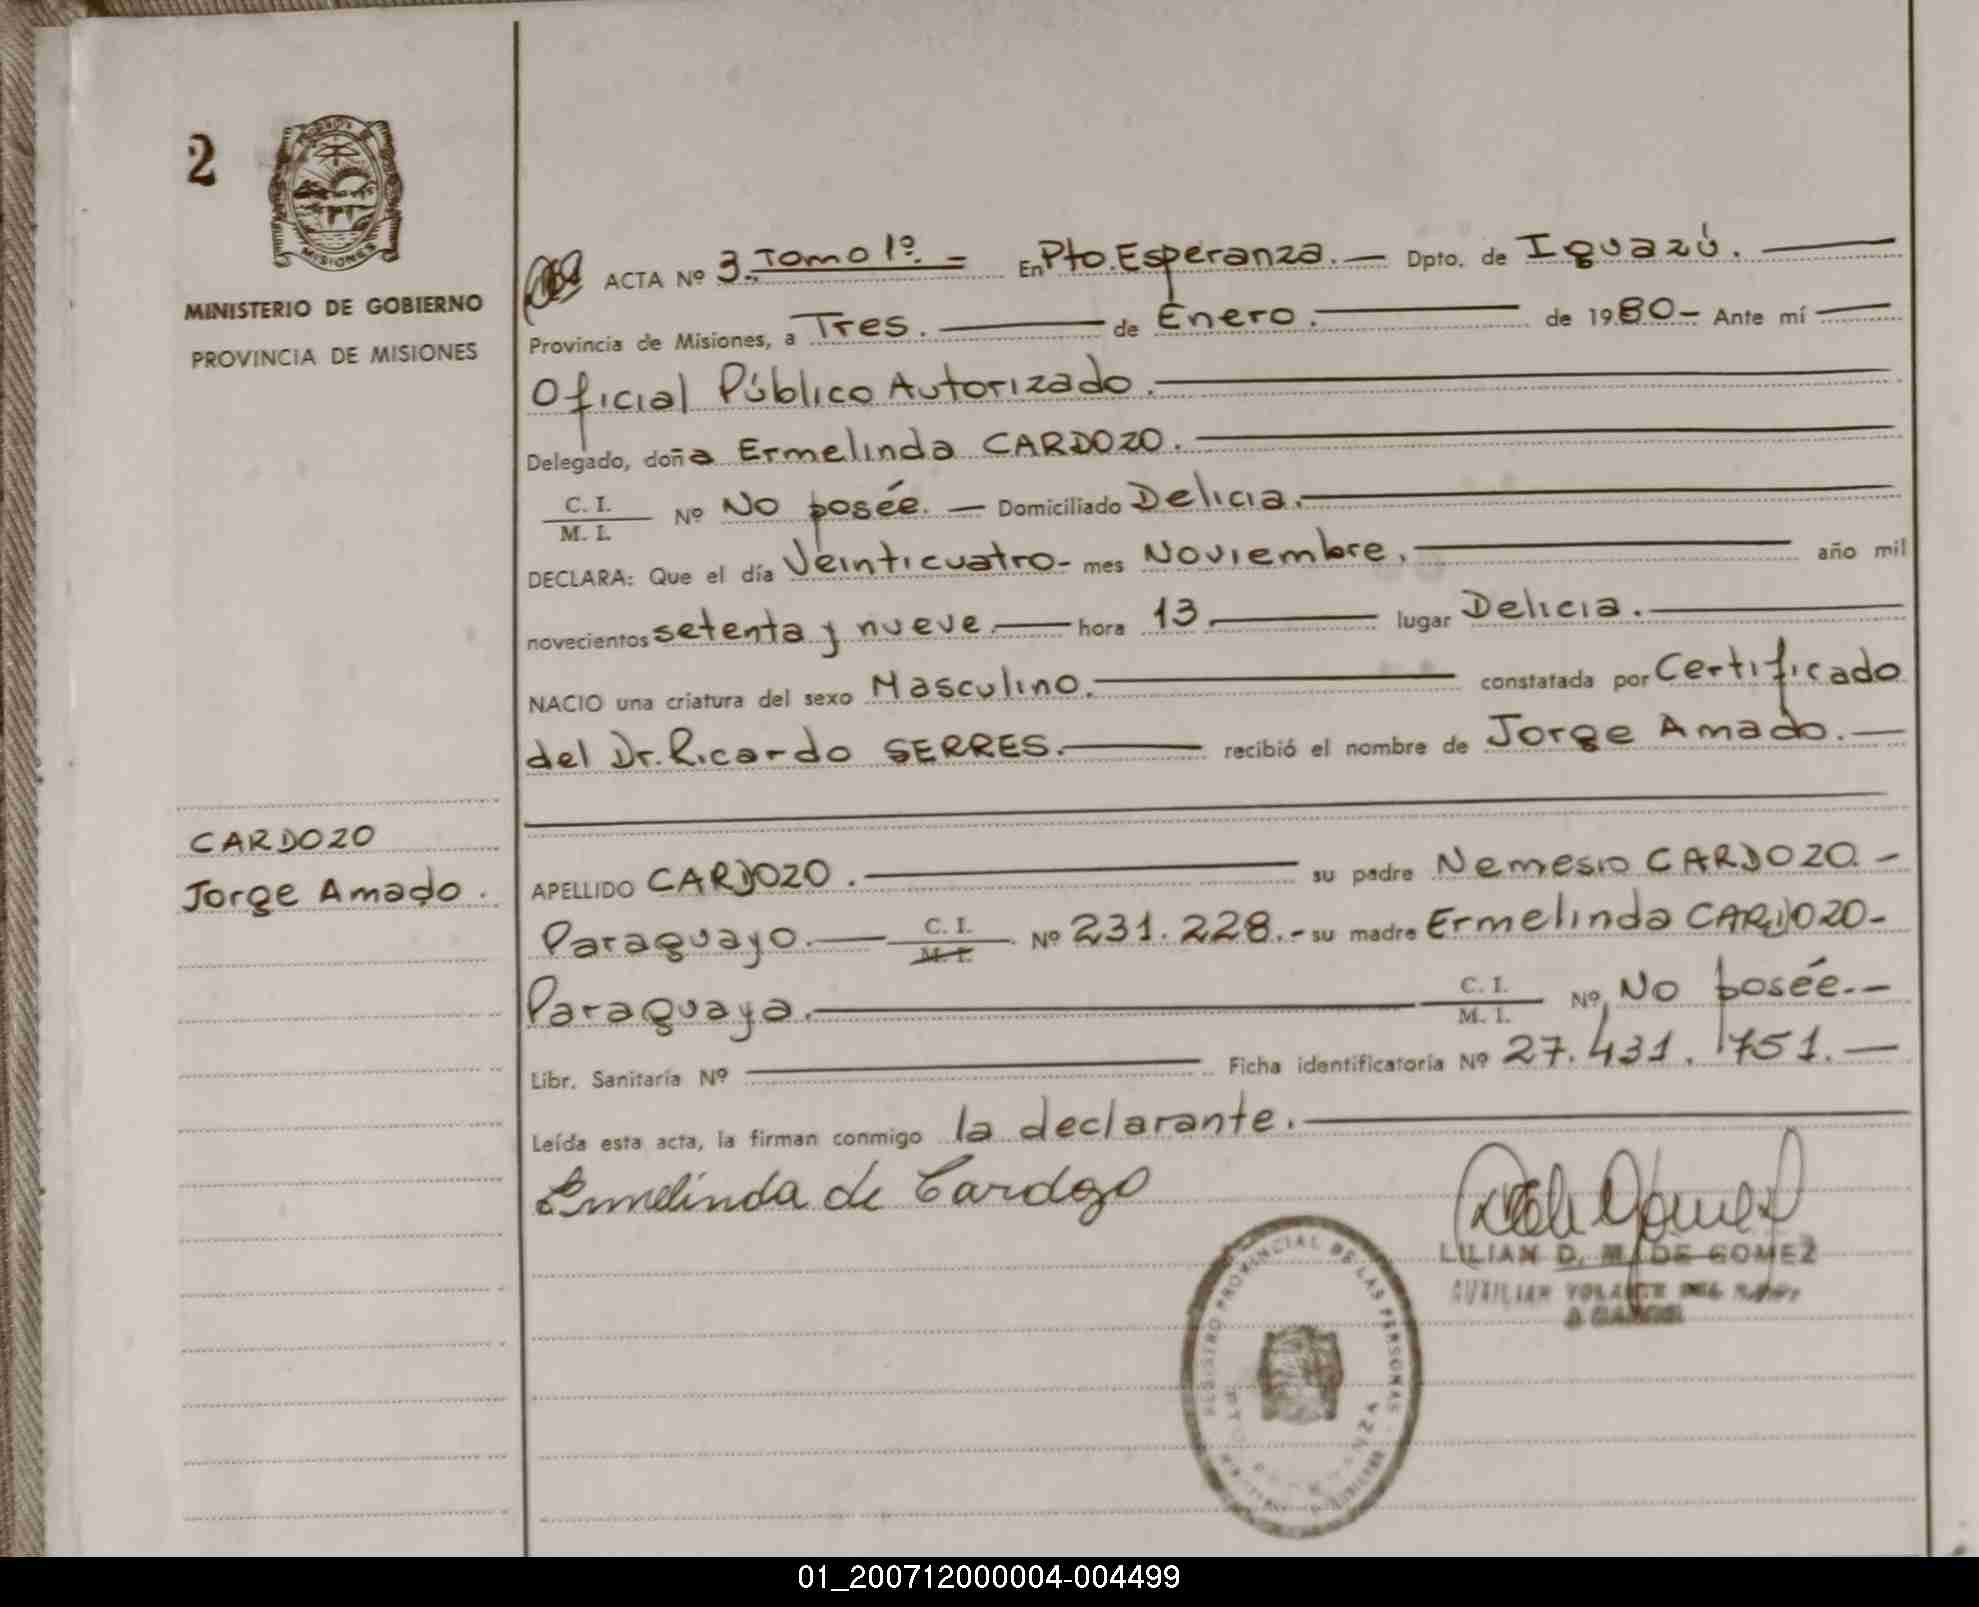 2
MISIONES
MINISTERIO DE GOBIERNO
PROVINCIA DE MISIONES
CARDOZO
Jorge Amado.
ACTA Nº 3. Tomo 1º. = En Pto. Esperanza. — Dpto. de Iguazú. —
Provincia de Misiones, a Tres. — de Enero. — de 1980 — Ante mí —
Oficial Público Autorizado. —
Delegado, doña Ermelinda CARDOZO. —
C. I.
M. I. Nº No posée. — Domiciliado Delicia. —
DECLARA: Que el día Veinticuatro - mes Noviembre. — año mil
novecientos setenta y nueve. — hora 13. — lugar Delicia. —
NACIO una criatura del sexo Masculino. — constatada por Certificado
del Dr. Ricardo SERRES. — recibió el nombre de Jorge Amado. —
APELLIDO CARDOZO. — su padre Nemesio CARDOZO. —
Paraguayo. — C. I. M. I. Nº 231.228. - su madre Ermelinda CARDOZO -
Paraguaya. — C. I. M. I. Nº No posée. —
Libr. Sanitaria Nº — Ficha identificatoria Nº 27.431.751. —
Leída esta acta, la firman conmigo la declarante. —
Ermelinda de Cardozo
LILIAN D. M. DE GOMEZ
AUXILIAR VOLANTE DEL
REGISTRO PROVINCIAL DE LAS PERSONAS
01_200712000004-004499